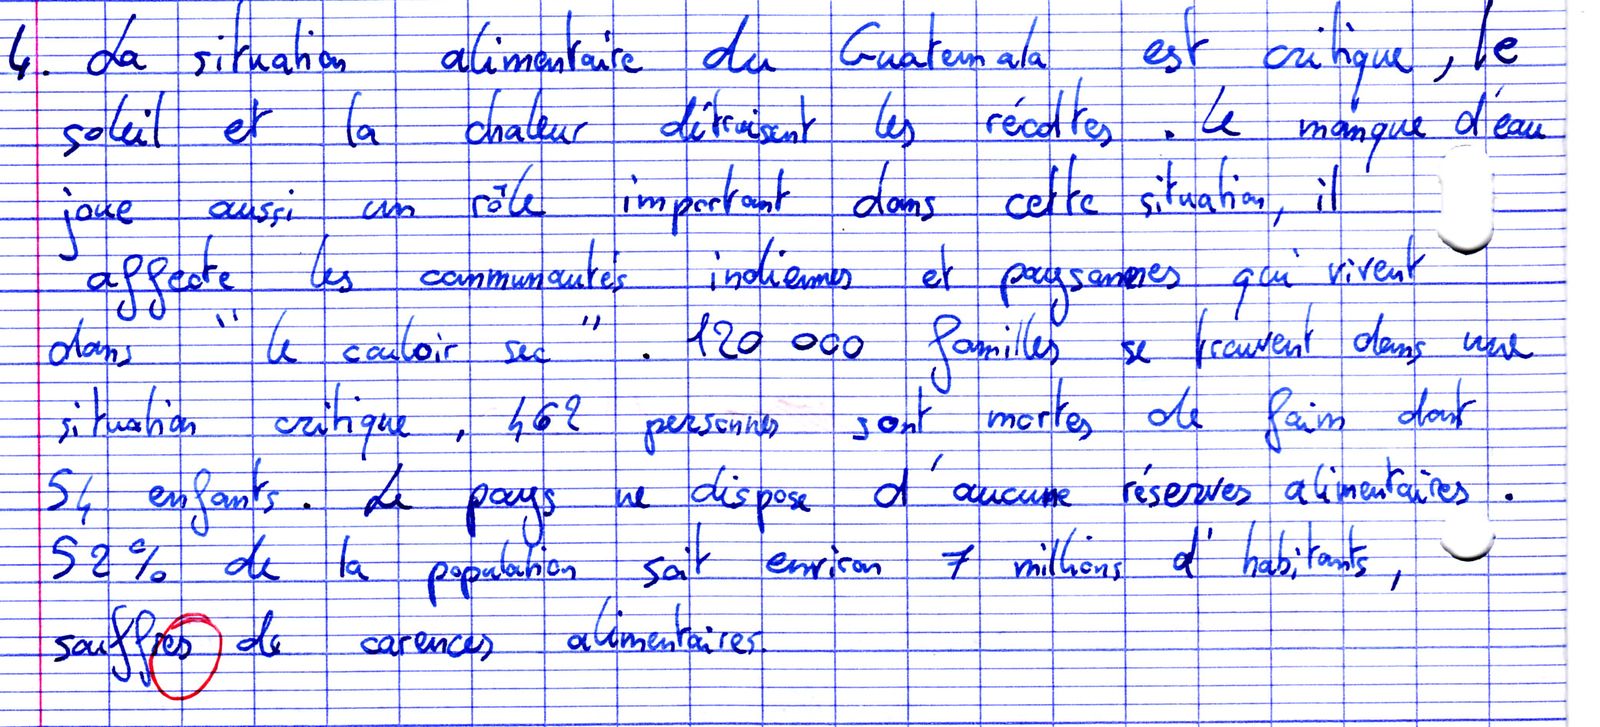 4. La situation alimentaire du Guatemala est critique, le
soleil et la chaleur détruisent les récoltes. Le manque d'eau
joue aussi un rôle important dans cette situation, il
affecte les communautés indiennes et paysannes qui vivent
dans " le couloir sec ". 120 000 familles se trouvent dans une
situation critique, 462 personnes sont mortes de faim dont
54 enfants. Le pays ne dispose d'aucune réserves alimentaires.
52% de la population soit environ 7 millions d'habitants,
souffres de carences alimentaires.